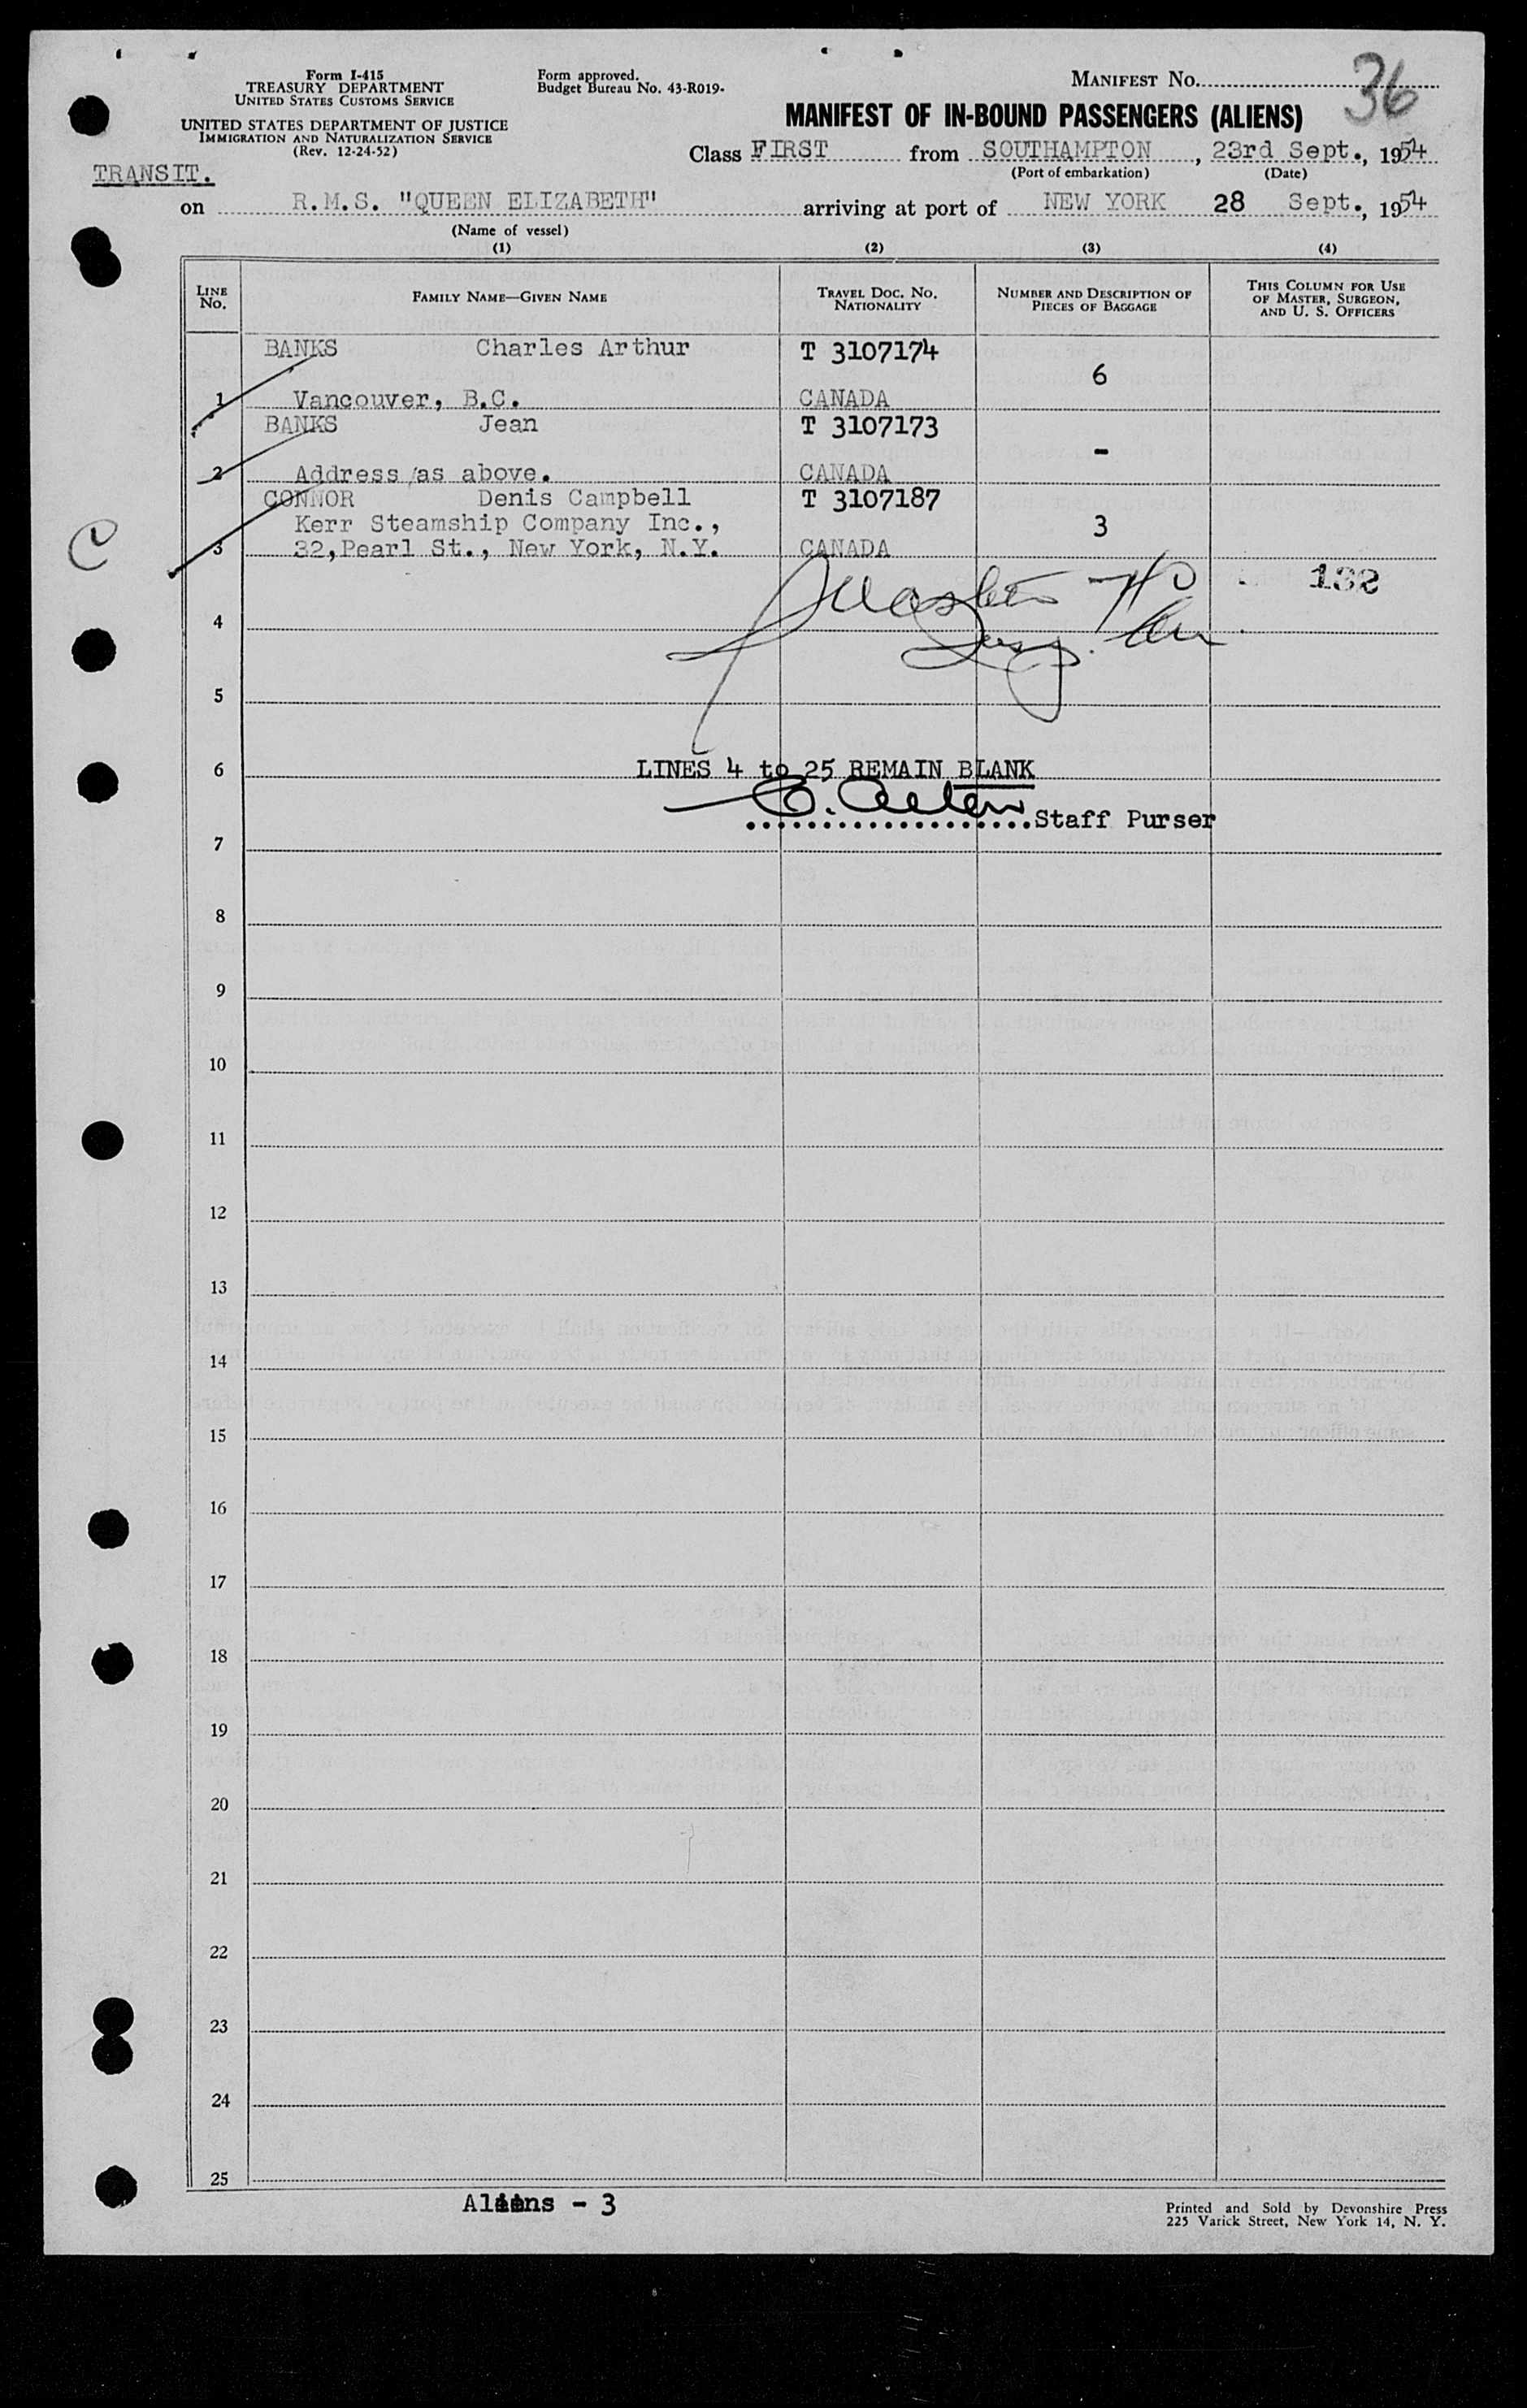 Form I-415
TREASURY DEPARTMENT
UNITED STATES CUSTOMS SERVICE
UNITED STATES DEPARTMENT OF JUSTICE
IMMIGRATION AND NATURALIZATION SERVICE
(Rev. 12-24-52)
TRANSIT.
Form approved.
Budget Bureau No. 43-R019.
MANIFEST No. 36
MANIFEST OF IN-BOUND PASSENGERS (ALIENS)
Class FIRST from SOUTHAMPTON, 23rd Sept., 1954
(Port of embarkation) (Date)
on R.M.S. "QUEEN ELIZABETH" arriving at port of NEW YORK 28 Sept., 1954
(Name of vessel)
(1) (2) (3) (4)
LINE No. FAMILY NAME—GIVEN NAME TRAVEL DOC. NO. NATIONALITY NUMBER AND DESCRIPTION OF PIECES OF BAGGAGE THIS COLUMN FOR USE OF MASTER, SURGEON, AND U. S. OFFICERS
BANKS Charles Arthur T 3107174
6
1 Vancouver, B.C. CANADA
BANKS Jean T 3107173
-
2 Address as above. CANADA
CONNOR Denis Campbell T 3107187
Kerr Steamship Company Inc., 3
C
3 32, Pearl St., New York, N.Y. CANADA
132
4
5
6 LINES 4 to 25 REMAIN BLANK
Staff Purser
7
8
9
10
11
12
13
14
15
16
17
18
19
20
21
22
23
24
25
Aliens - 3
Printed and Sold by Devonshire Press
225 Varick Street, New York 14, N. Y.